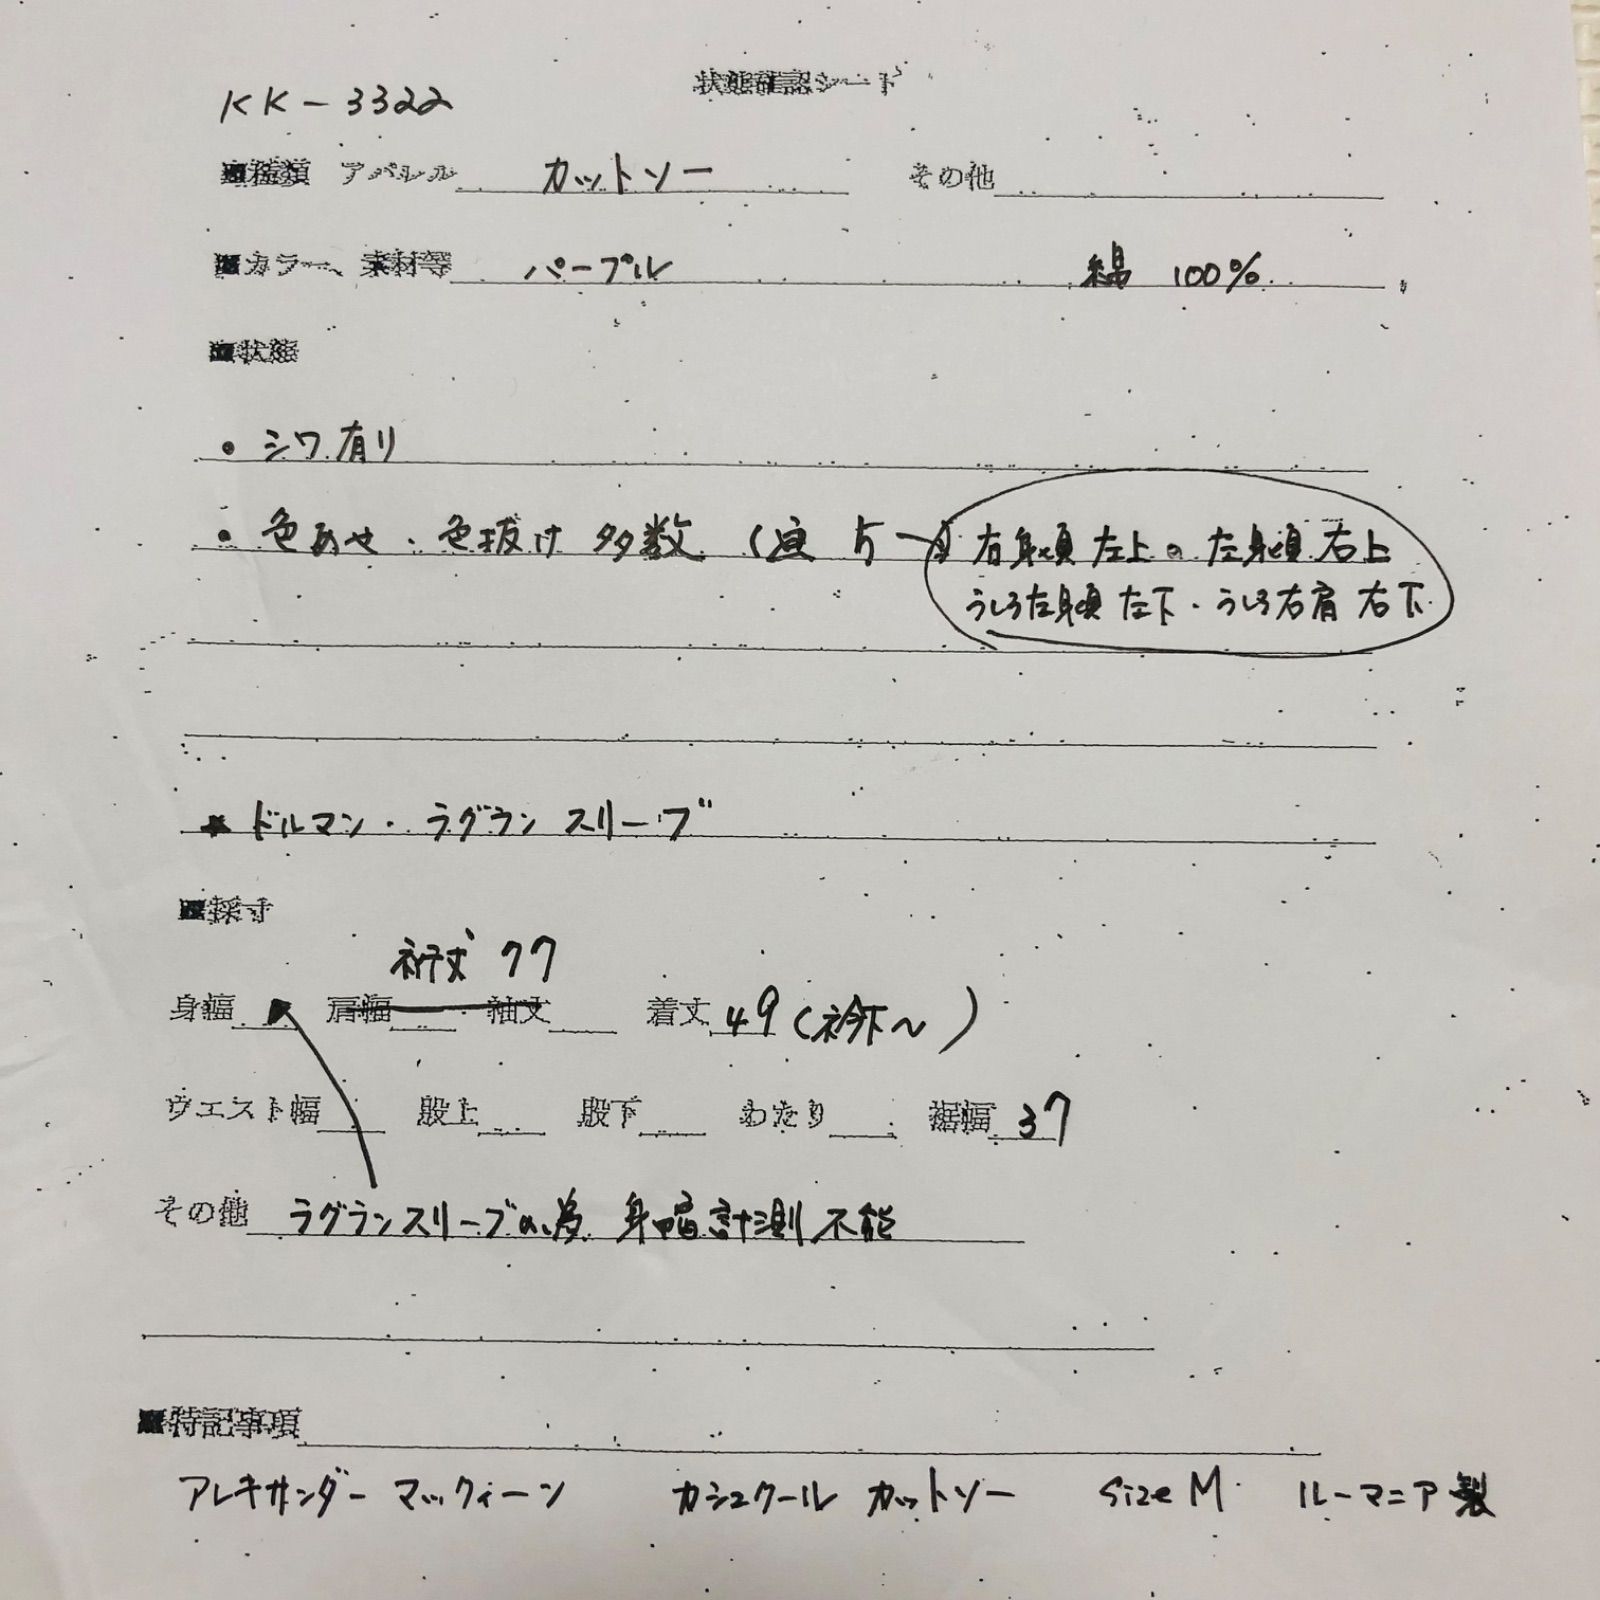 状態確認シート
KK-3322
■種類 アパレル カットソー その他
■カラー、素材等 パープル 綿 100%
■状態
・シワ有り
・色あせ・色抜け 多数 ( 右身頃 左上の 左身頃 右上
うしろ左身頃 左下・うしろ右肩 右下
★ ドルマン・ラグランスリーブ
■採寸
裄丈 77
身幅 肩幅 袖丈 着丈 49 (衿下~)
ウエスト幅 股上 股下 わたり 裾幅 37
その他 ラグランスリーブの為 身幅計測不能
■特記事項
アレキサンダーマックィーン カシュクール カットソー size M ルーマニア製